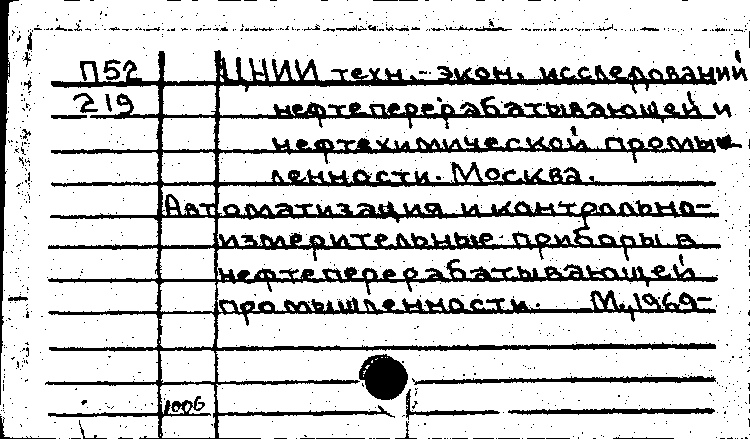 П52 ЦНИИ техн.-экон. исследований
219 нефтеперерабатывающей и
нефтехимической промыш
ленности. Москва.
Автоматизация и контрольно-
измерительные приборы в
нефтеперерабатывающей
промышленности. М., 1969-
1006